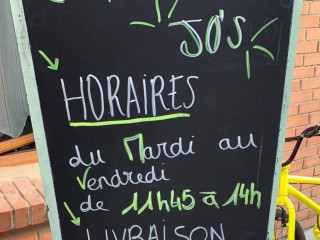 JO'S
HORAIRES
du Mardi au
Vendredi
de 11h45 à 14h
LIVRAISON